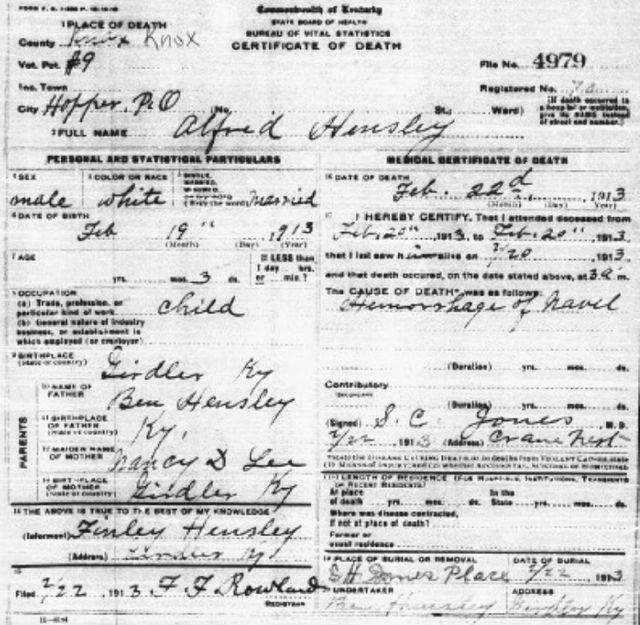 Commonwealth of Kentucky
STATE BOARD OF HEALTH
BUREAU OF VITAL STATISTICS
CERTIFICATE OF DEATH
1 PLACE OF DEATH
County Knox Knox
Vot. Pct. #9
Inc. Town
City Hopper P.O (No. St.; Ward)
File No. 4979
Registered No.
[If death occurred in a hospital or institution, give its NAME instead of street and number.]
2 FULL NAME Alfred Hensley
PERSONAL AND STATISTICAL PARTICULARS
3 SEX
male
4 COLOR OR RACE
white
5 SINGLE, MARRIED, (Write the word)
married
6 DATE OF BIRTH
Feb 19" 1913
(Month) (Day) (Year)
7 AGE
yrs. mos. 3 ds.
If LESS than 1 day hrs. or min.?
8 OCCUPATION
(a) Trade, profession, or particular kind of work
child
(b) General nature of industry business, or establishment in which employed (or employer)
9 BIRTHPLACE
(State or country)
Girdler Ky
PARENTS
10 NAME OF FATHER
Ben Hensley
11 BIRTHPLACE OF FATHER
(State or country)
Ky.
12 MAIDEN NAME OF MOTHER
Nancy D Lee
13 BIRTHPLACE OF MOTHER
(State or country)
Girdler Ky
14 THE ABOVE IS TRUE TO THE BEST OF MY KNOWLEDGE
(Informant) Finley Hensley
(Address) Girdler Ky
15
Filed 2/22 1913. F F Rowland
REGISTRAR
MEDICAL CERTIFICATE OF DEATH
16 DATE OF DEATH
Feb. 22d 1913
(Month) (Day) (Year)
17 I HEREBY CERTIFY, That I attended deceased from
Feb. 20", 1913, to Feb. 20", 1913,
that I last saw him alive on 2/20, 1913,
and that death occured, on the date stated above, at 3 a. m.
The CAUSE OF DEATH was as follows:
Hemorrhage of Navel
(Duration) yrs. mos. ds.
Contributory
SECONDARY
(Duration) yrs. mos. ds.
(Signed) S. C. Jones M.D.
2/22 1913 (Address) Crane Nest
LENGTH OF RESIDENCE (For Hospitals, Institutions, Transients or Recent Residents)
At place of death yrs. mos. ds. In the State yrs. mos. ds.
Where was disease contracted, if not at place of death?
Former or usual residence
19 PLACE OF BURIAL OR REMOVAL
S H Jones Place
DATE OF BURIAL
2/22 1913
20 UNDERTAKER
Hensley
ADDRESS
Ky